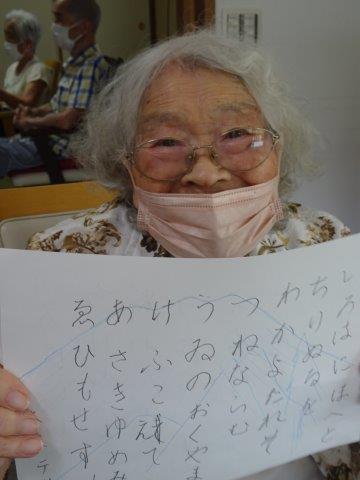 いろはにほへと
ちりぬるを
わかよたれそ
つねならむ
うゐのおくやま
けふこ て
あさきゆめみ
ゑひもせす